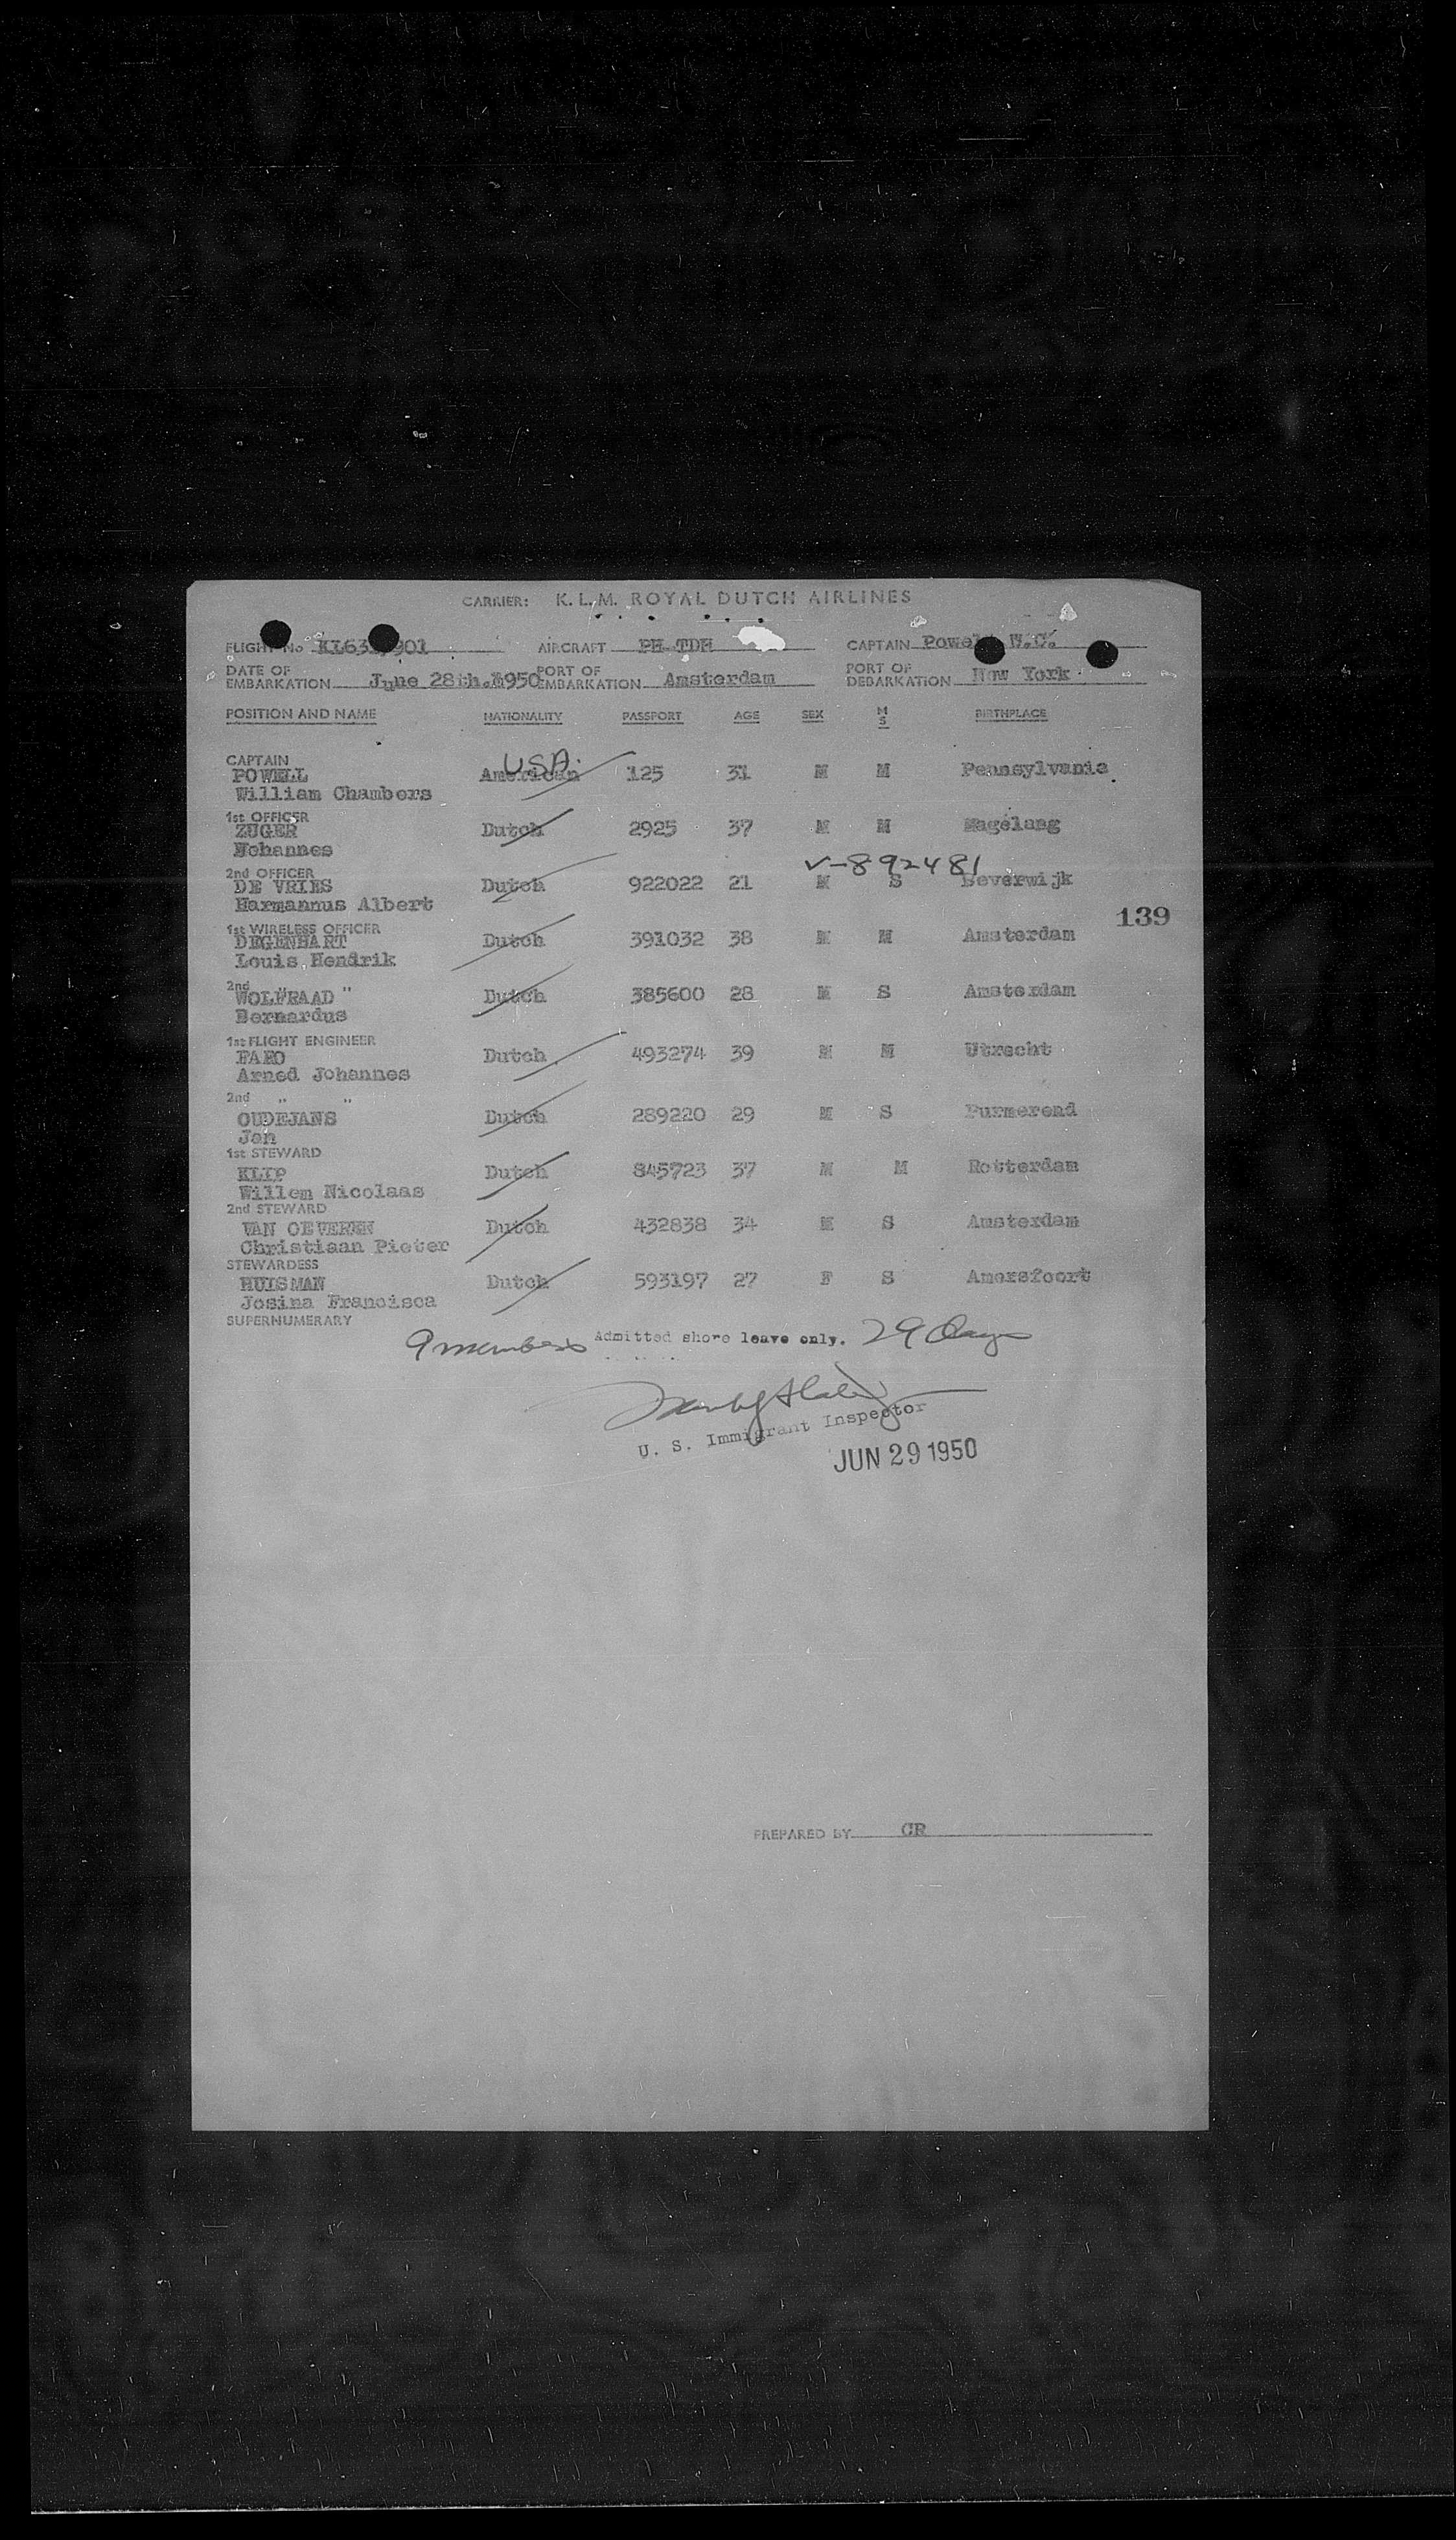 CARRIER: K.L.M. ROYAL DUTCH AIRLINES
FLIGHT No AIRCRAFT PH-TDH CAPTAIN Powell W.C.
DATE OF EMBARKATION June 28th.1950 PORT OF EMBARKATION Amsterdam PORT OF DEBARKATION New York
POSITION AND NAME NATIONALITY PASSPORT AGE SEX M S BIRTHPLACE
CAPTAIN
USA.
POWELL American 125 31 M M Pennsylvania
William Chambers
1st OFFICER
ZUGER Dutch 2925 37 M M Magelang
Johannes
V-892481
2nd OFFICER
DE VRIES Dutch 922022 21 M S Beverwijk
Harmannus Albert
139
1st WIRELESS OFFICER
DEGENHART Dutch 391032 38 M M Amsterdam
Louis Hendrik
2nd " "
WOLFRAAD Dutch 385600 28 M S Amsterdam
Bernardus
1st FLIGHT ENGINEER
FABO Dutch 493274 39 M M Utrecht
Arned Johannes
2nd " "
OUDEJANS Dutch 289220 29 M S Purmerend
Jan
1st STEWARD
KLIP Dutch 845723 37 M M Rotterdam
Willem Nicolaas
2nd STEWARD
VAN OEVEREN Dutch 432838 34 M S Amsterdam
Christiaan Pieter
STEWARDESS
HUISMAN Dutch 593197 27 F S Amersfoort
Josina Francisca
SUPERNUMERARY
9 members Admitted shore leave only. 29 Days
U. S. Immigrant Inspector
JUN 29 1950
PREPARED BY CR